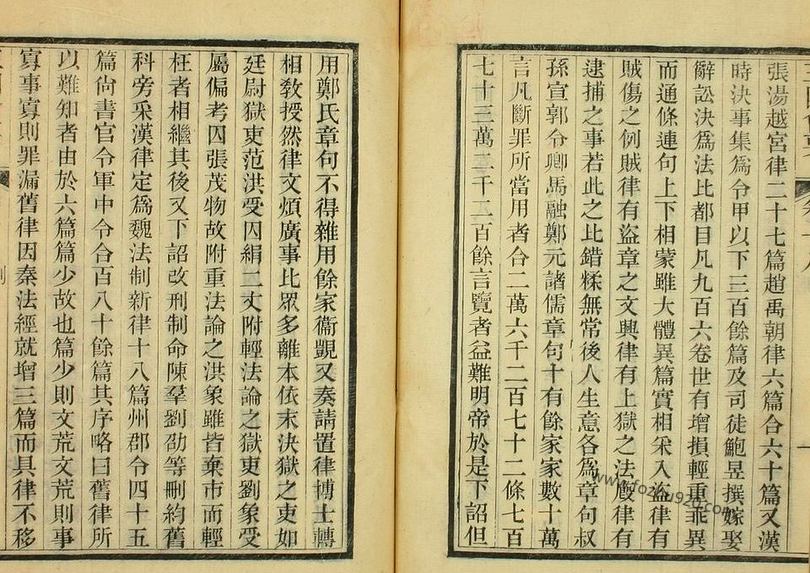 張湯越宮律二十七篇趙禹朝律六篇合六十篇又漢
時決事集為令甲以下三百餘篇及司徒鮑昱撰嫁娶
辭訟決為法比都目凡九百六卷世有增損輕重乖異
而通條連句上下相蒙雖大體異篇實相采入盜律有
賊傷之例賊律有盜章之文興律有上獄之法廄律有
逮捕之事若此之比錯糅無常後人生意各為章句叔
孫宣郭令卿馬融鄭元諸儒章句十有餘家家數十萬
言凡斷罪所當用者合二萬六千二百七十二條七百
七十三萬二千二百餘言覽者益難明帝於是下詔但
用鄭氏章句不得雜用餘家衞覬又奏請置律博士轉
相教授然律文煩廣事比眾多離本依末決獄之吏如
廷尉獄吏范洪受囚絹二丈附輕法論之獄吏劉象受
屬偏考囚張茂物故附重法論之洪象雖皆棄市而輕
枉者相繼其後又下詔改刑制命陳羣劉劭等刪約舊
科旁采漢律定為魏法制新律十八篇州郡令四十五
篇尙書官令軍中令合百八十餘篇其序略曰舊律所
以難知者由於六篇篇少故也篇少則文荒文荒則事
寡事寡則罪漏舊律因秦法經就增三篇而具律不移